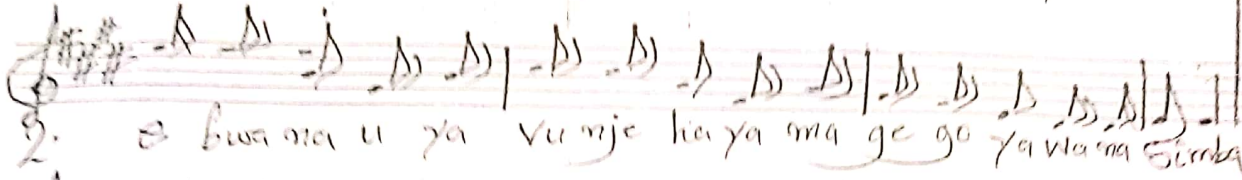 2. e bwa na u ya vu nje lia ya ma ge go ya wa na Simba